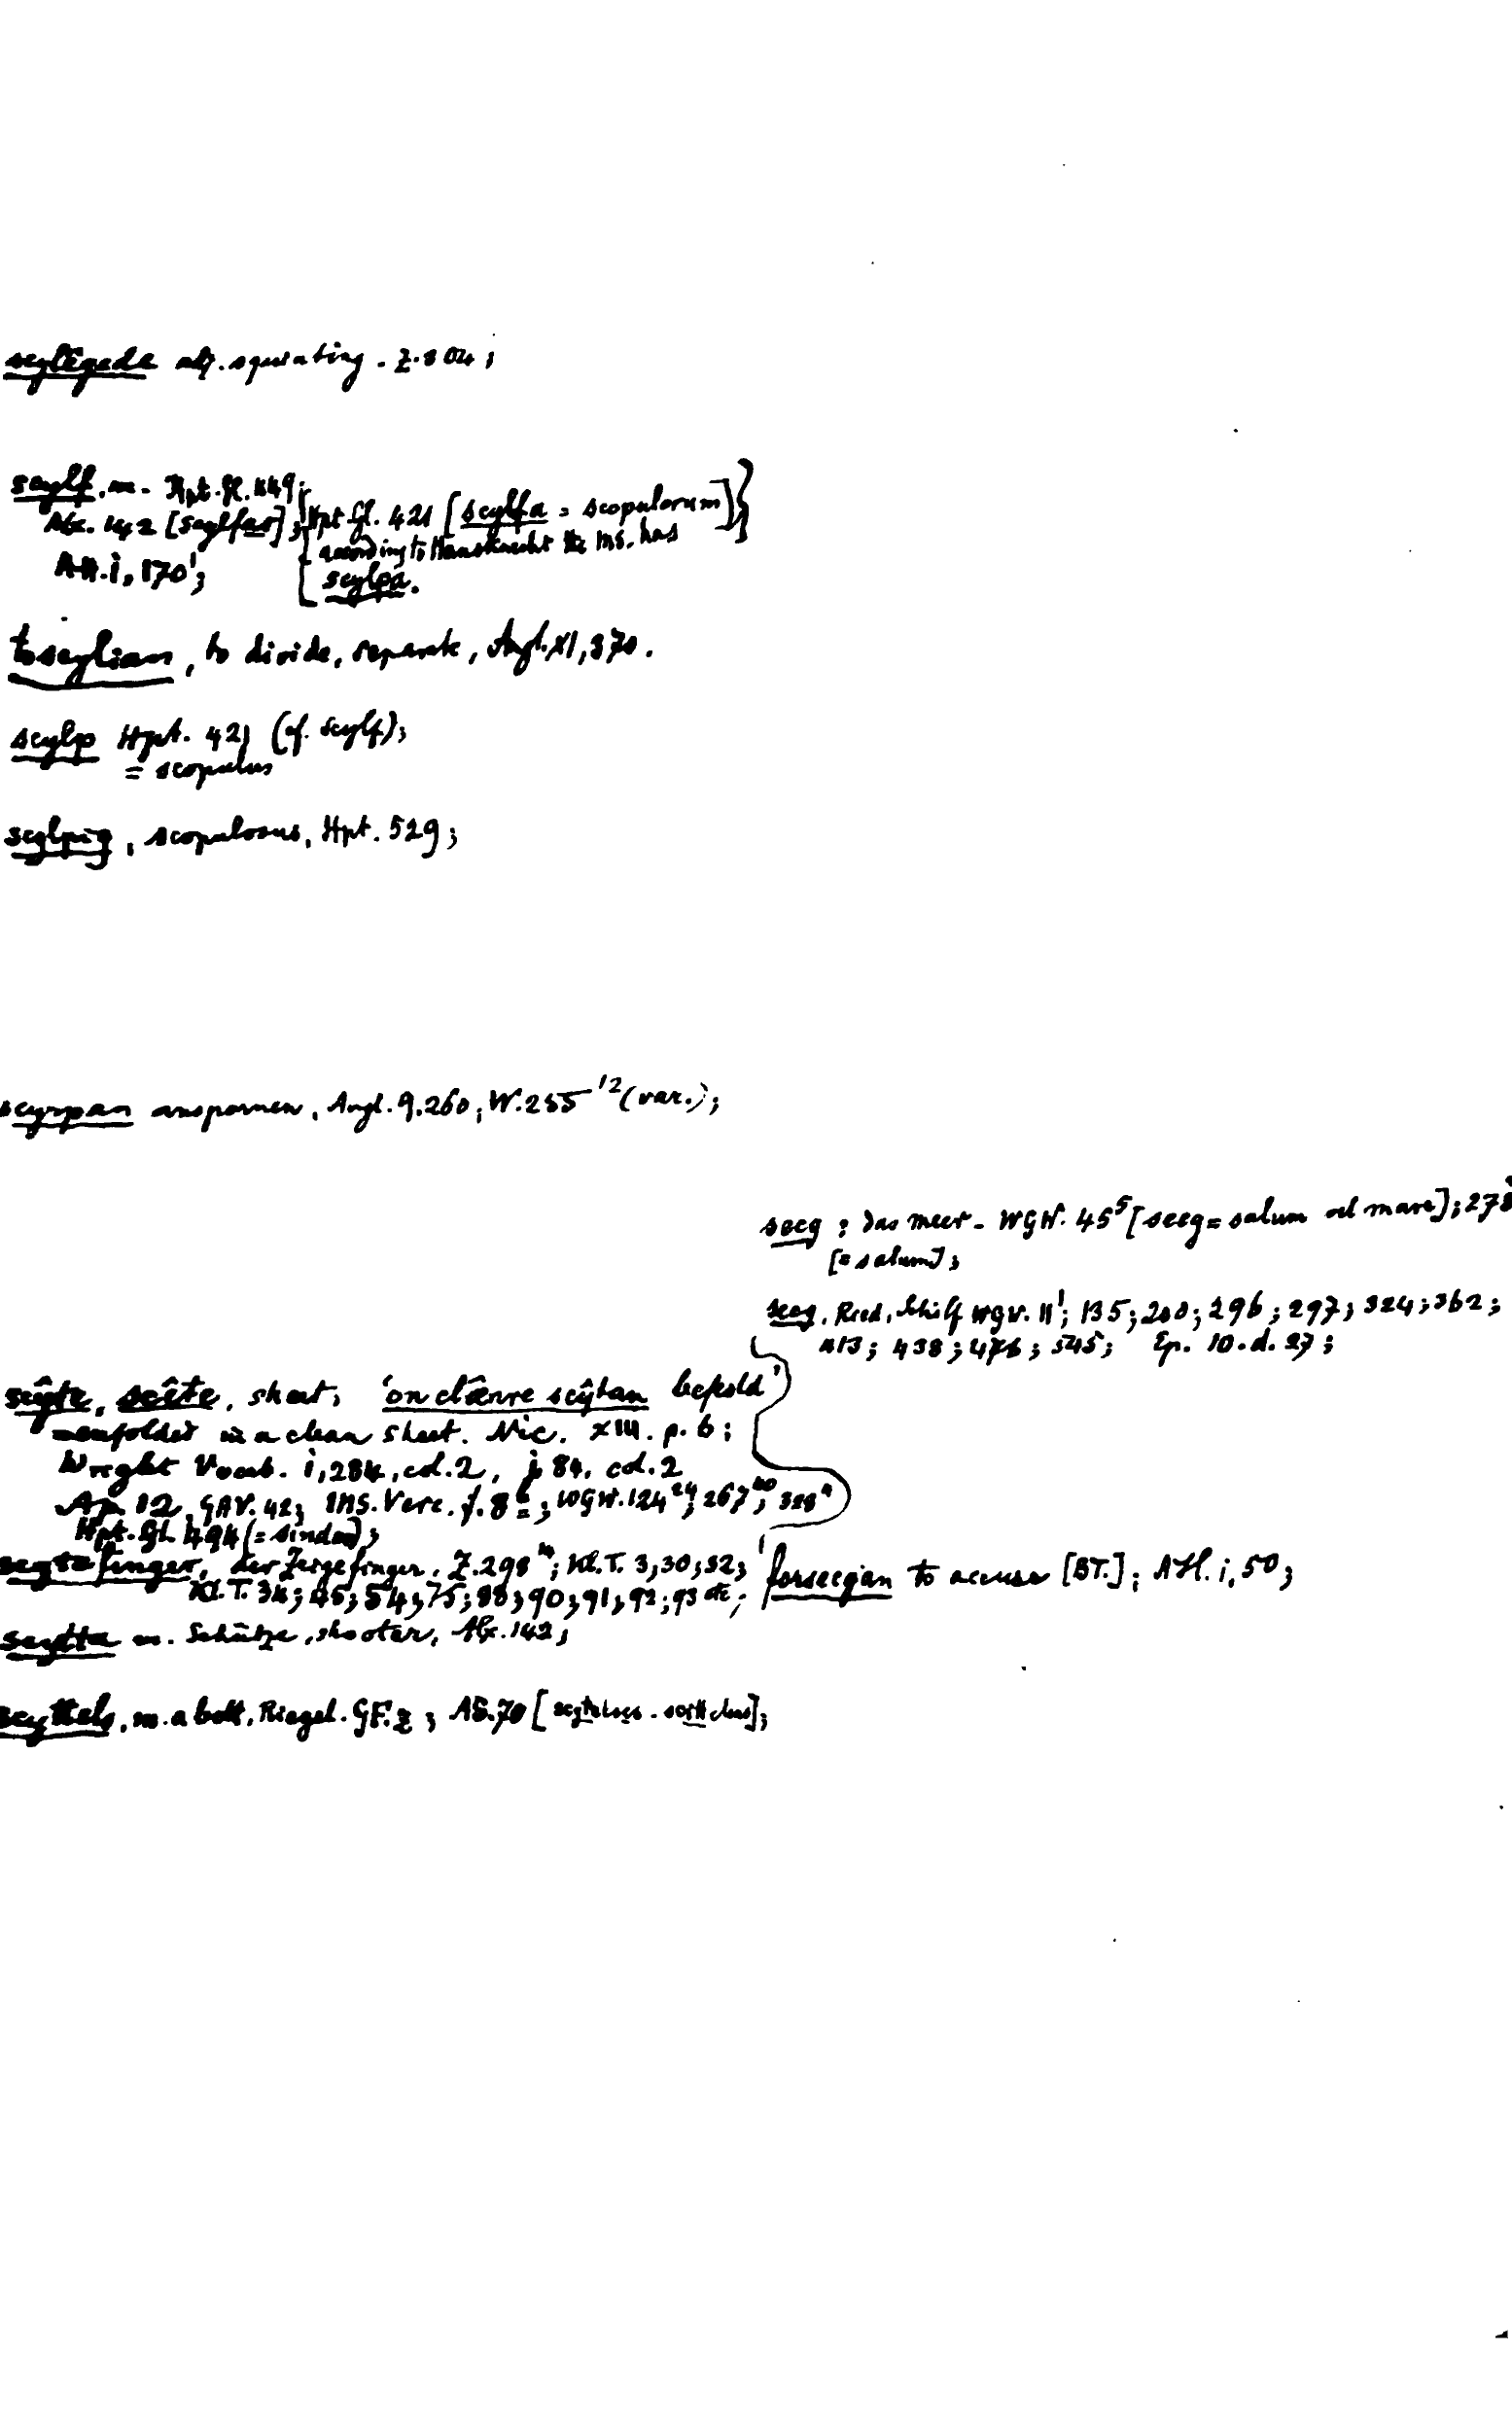 scylêgede adj. squinting. Z. 304;
scylf, m. Hpt. Gl. 449;
Alx. 142 [scylfas]; Hpt Gl. 421 [scylfa = scopulorum]
according to Hausknecht the MS. has
AH. i, 170';
scylpa.
toscylian, to divide, separate, Angl. XI, 370.
scylp Hpt. 421 (cf. scylf);
= scopulus
scylpig, scopulosus, Hpt. 529;
scyrpan anspornen, Angl. 9.260; W. 255 12 (var.);
secg : das meer - WGW. 45 5 [secg = salum vel mare]; 278
[= salum];
secg, Reed, Schilf WGW. 11'; 135; 200; 296; 297; 324; 362;
413; 438; 476; 545; Ep. 10. d. 27;
scŷte, scîte, sheet; 'on clænre scŷtan befeold'
= enfolded in a clean sheet. Nic. XIII. p. 6;
Wright Vocab. i, 284, col. 2, 84, col. 2
Ap. 12, GAV. 42; MS. Verc. f. 8; WGW. 124 29; 267 20; 328
Hpt. Gl. 494 (= sindon);
scytefinger, der Zeigefinger, Z. 298; Kl. T. 3, 30; 32;
Kl. T. 34; 45; 54; 75; 88; 90; 91; 92; 93 etc;
forsecgan to accuse [BT.]; AH. i, 50;
scytta m. Schütze, shooter, Alx. 142;
scyttels, m. a bolt, Riegel. GF. 2; AS. 70